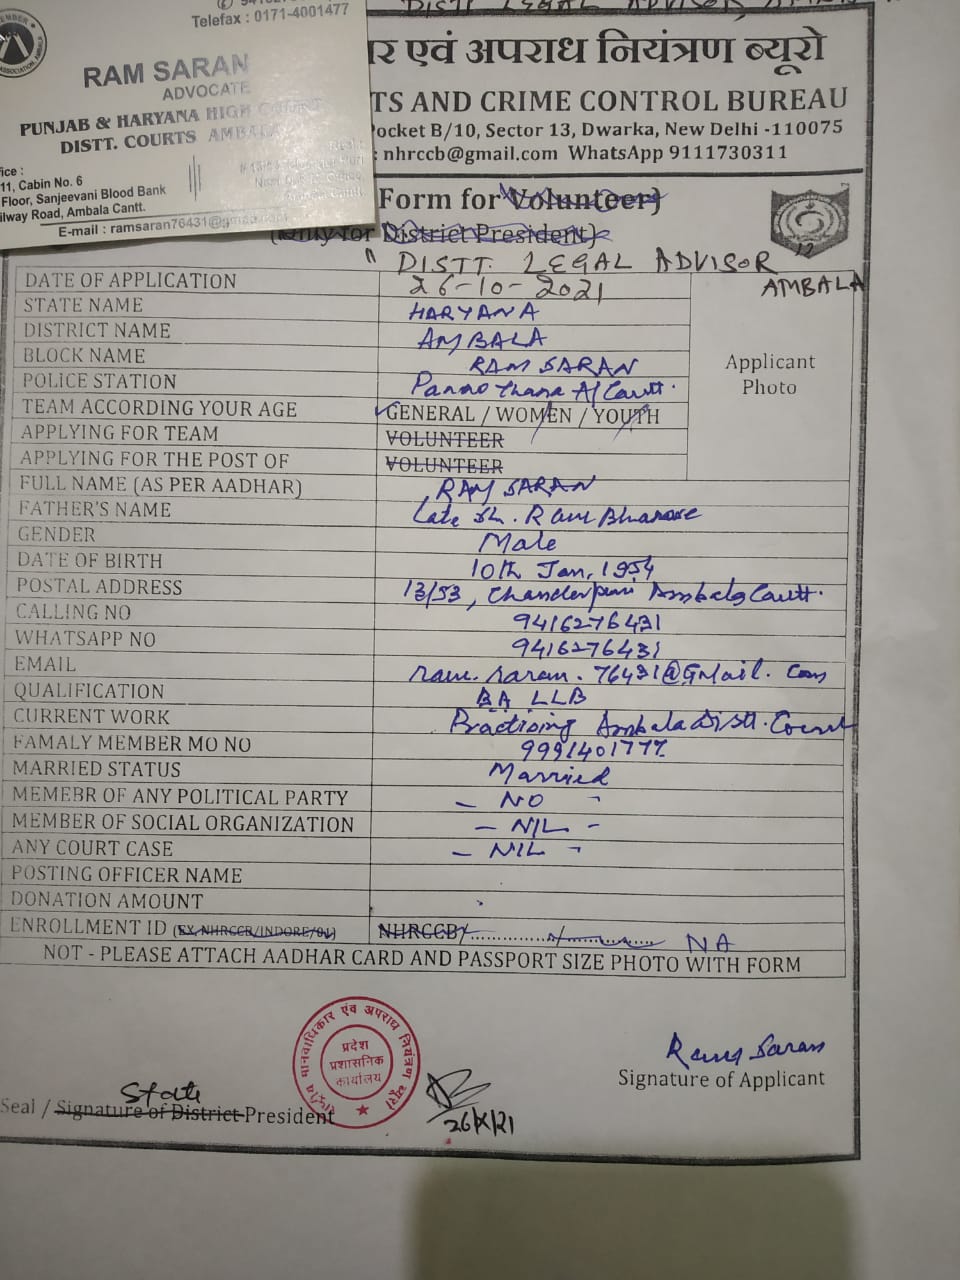 DISTT LEGAL ADVISOR,
Telefax : 0171-4001477
RAM SARAN
ADVOCATE
PUNJAB & HARYANA HIGH COURT
DISTT. COURTS AMBALA
11, Cabin No. 6
Floor, Sanjeevani Blood Bank
Road, Ambala Cantt.
E-mail : ramsaran76431@gmail.com
एवं अपराध नियंत्रण ब्यूरो
TS AND CRIME CONTROL BUREAU
Pocket B/10, Sector 13, Dwarka, New Delhi -110075
: nhrccb@gmail.com WhatsApp 9111730311
Form for Volunteer)
(Only for District President)
" DISTT. LEGAL ADVISOR "
AMBALA
DATE OF APPLICATION 26-10-2021
STATE NAME HARYANA
DISTRICT NAME AMBALA
BLOCK NAME RAM SARAN
POLICE STATION Thana A/Cantt.
Applicant
Photo
TEAM ACCORDING YOUR AGE GENERAL / WOMEN / YOUTH
APPLYING FOR TEAM VOLUNTEER
APPLYING FOR THE POST OF VOLUNTEER
FULL NAME (AS PER AADHAR) RAM SARAN
FATHER'S NAME Late Sh. Ram
GENDER Male
DATE OF BIRTH 10th Jan, 1954
POSTAL ADDRESS 13/53, Chanderpuri Ambala Cantt.
CALLING NO 9416276431
WHATSAPP NO 9416276431
EMAIL ram.saran.76431@Gmail.com
QUALIFICATION BA LLB
CURRENT WORK Practising Ambala Distt. Court
FAMALY MEMBER MO NO
MARRIED STATUS Married
MEMEBR OF ANY POLITICAL PARTY - NO -
MEMBER OF SOCIAL ORGANIZATION - NIL -
ANY COURT CASE - NIL -
POSTING OFFICER NAME
DONATION AMOUNT
ENROLLMENT ID (EX, NHRCCB/INDORE/01) NHRCCB/.................... NA
NOT - PLEASE ATTACH AADHAR CARD AND PASSPORT SIZE PHOTO WITH FORM
राष्ट्रीय मानवाधिकार एंव अपराध नियंत्रण ब्यूरो
प्रदेश
प्रशासनिक
कार्यालय
Ram Saran
Signature of Applicant
State
Seal / Signature of District President
26/X/21